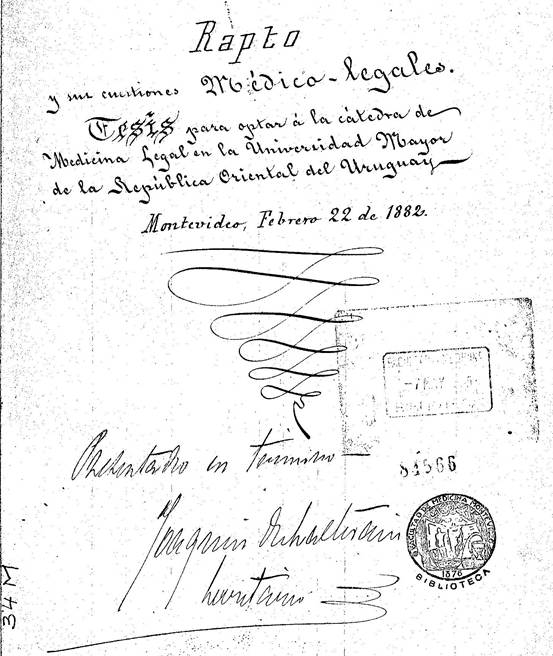 Rapto
y sus cuestiones Médico-legales.
Tesis para optar á la cátedra de
Medicina Legal en la Universidad Mayor
de la República Oriental del Uruguay
Montevideo, Febrero 22 de 1882.
Presentado en término
84566
Joaquin
Secretario
FACULTAD DE MEDICINA MONTEVIDEO
1876
BIBLIOTECA
34M